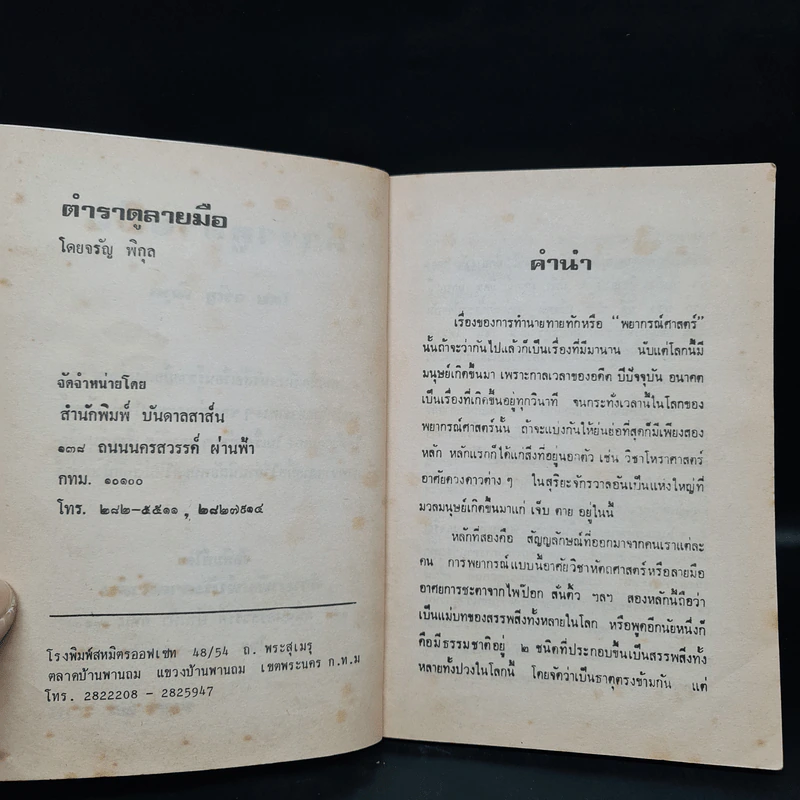 ตำราดูลายมือ
โดยจรัญ พิกุล
จัดจำหน่ายโดย
สำนักพิมพ์ บันดาลสาส์น
๑๓๘ ถนนนครสวรรค์ ผ่านฟ้า
กทม. ๑๐๑๐๐
โทร. ๒๘๒-๕๕๑๑ , ๒๘๒๗๙๑๔
โรงพิมพ์สหมิตรออฟเซท 48/54 ถ. พระสุเมรุ
ตลาดบ้านพานถม แขวงบ้านพานถม เขตพระนคร ก.ท.ม
โทร. 2822208 - 2825947
คำนำ
เรื่องของการทำนายทายทักหรือ "พยากรณ์ศาสตร์"
นั้นถ้าจะว่ากันไปแล้วก็เป็นเรื่องที่มีมานาน นับแต่โลกนี้มี
มนุษย์เกิดขึ้นมา เพราะกาลเวลาของอดีต ปัจจุบัน อนาคต
เป็นเรื่องที่เกิดขึ้นอยู่ทุกวินาที จนกระทั่งเวลานี้ในโลกของ
พยากรณ์ศาสตร์นั้น ถ้าจะแบ่งกันให้ย่นย่อที่สุดก็มีเพียงสอง
หลัก หลักแรกก็ได้แก่สิ่งที่อยู่นอกตัว เช่น วิชาโหราศาสตร์
อาศัยดวงดาวต่าง ๆ ในสุริยะจักรวาลอันเป็นแห่งใหญ่ที่
มวลมนุษย์เกิดขึ้นมาแก่ เจ็บ ตาย อยู่ในนี้
หลักที่สองคือ สัญญลักษณ์ที่ออกมาจากคนเราแต่ละ
คน การพยากรณ์แบบนี้อาศัยวิชาหัตถศาสตร์หรือลายมือ
อาศัยการชะตาจากไพ่ป๊อก สั่นติ้ว ฯลฯ สองหลักนี้ถือว่า
เป็นแม่บทของสรรพสิ่งทั้งหลายในโลก หรือพูดอีกนัยหนึ่งก็
คือมีธรรมชาติอยู่ ๒ ชนิดที่ประกอบขึ้นเป็นสรรพสิ่งทั้ง
หลายทั้งปวงในโลกนี้ โดยจัดว่าเป็นธาตุตรงข้ามกัน แต่